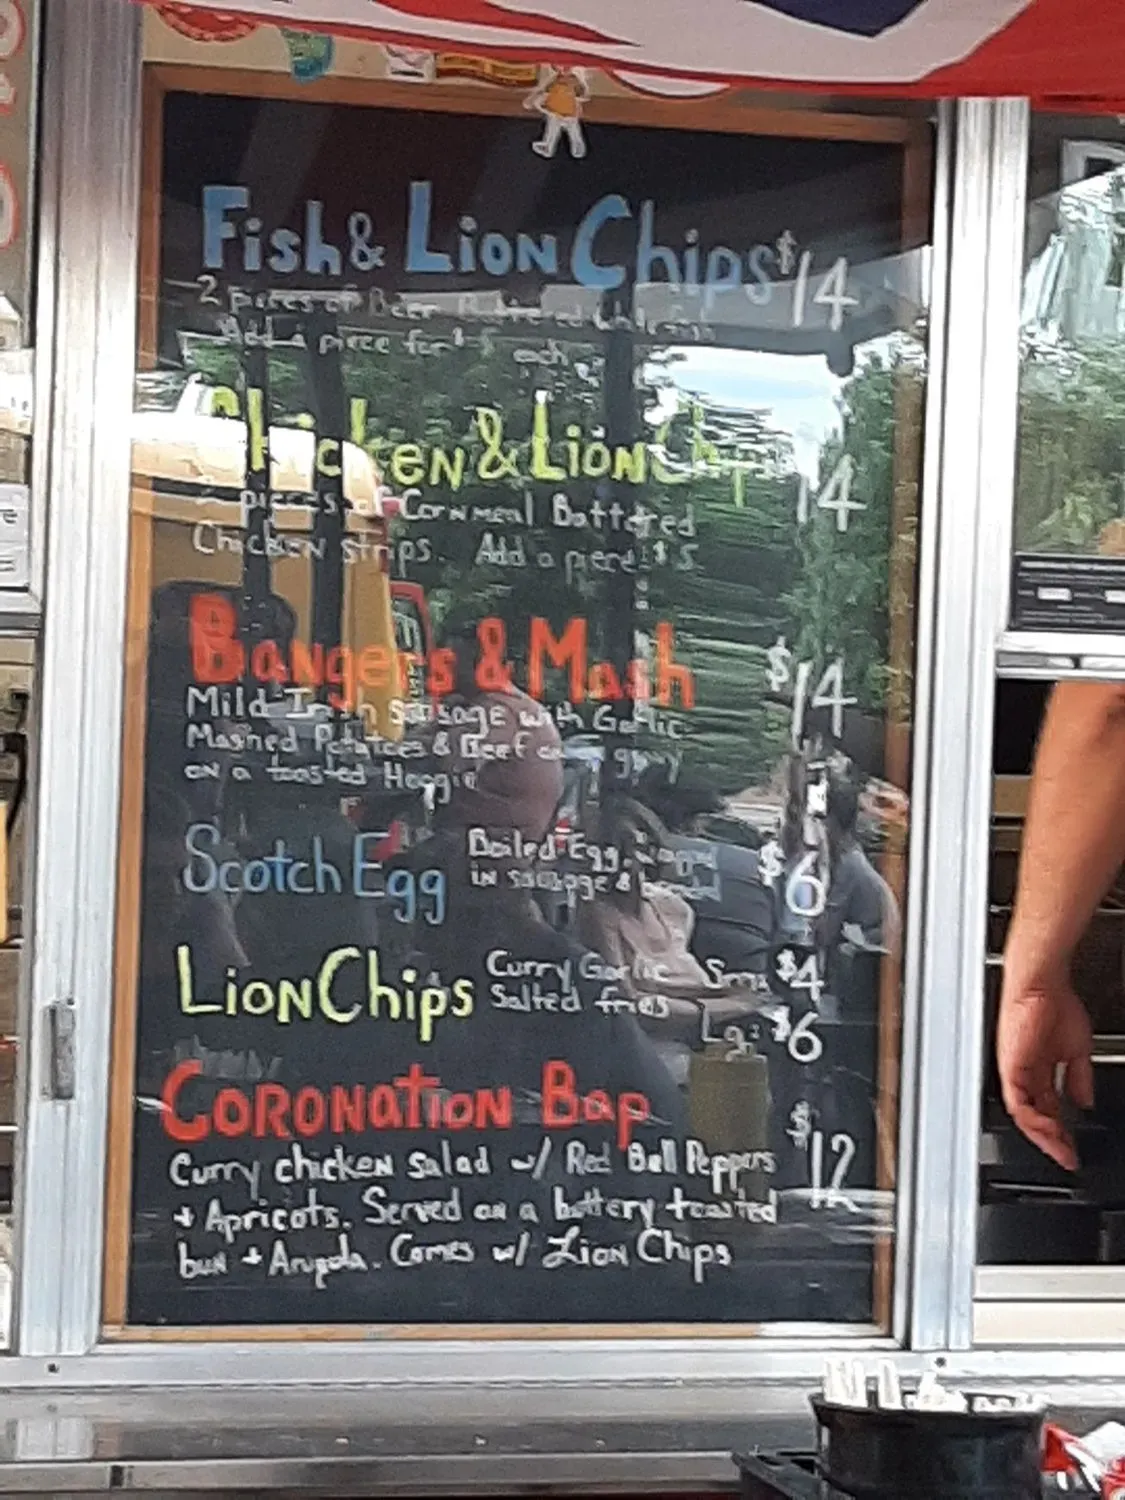 Fish & Lion Chips $14
2 pieces of Beer Battered
Add a piece for $5 each
Chicken & Lion Chips 14
pieces of Cornmeal Battered
Chicken strips. Add a piece $5
Bangers & Mash $14
Mild Irish sausage with Garlic
Mashed Potatoes & Beef gravy
on a toasted Hoggie
Scotch Egg Boiled Egg, $6
in sausage &
Lion Chips Curry Garlic Sm: $4
Salted fries
Lg: $6
Coronation Bap $12
Curry chicken salad w/ Red Bell Peppers
+ Apricots. Served on a buttery toasted
bun + Arugula. Comes w/ Lion Chips